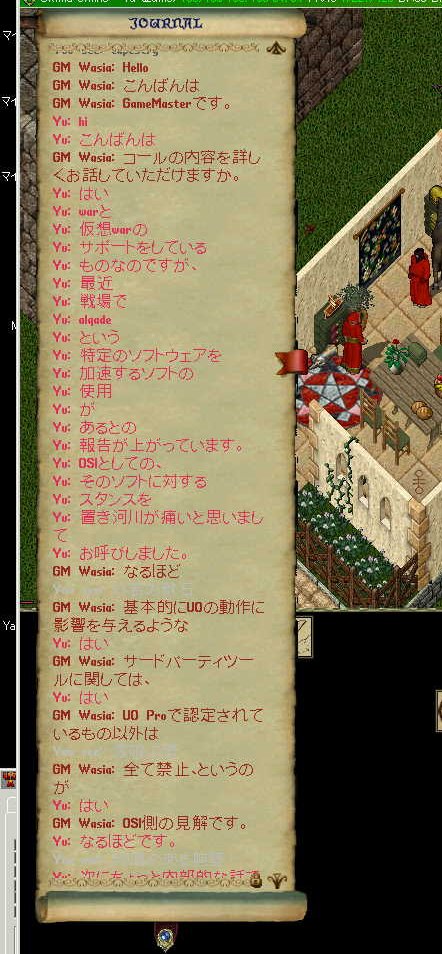 JOURNAL
GM Wasia: Hello
GM Wasia: こんばんは
GM Wasia: GameMasterです。
Yu: hi
Yu: こんばんは
GM Wasia: コールの内容を詳し
くお話していただけますか。
Yu: はい
Yu: warと
Yu: 仮想warの
Yu: サポートをしている
Yu: ものなのですが、
Yu: 最近
Yu: 戦場で
Yu: alqade
Yu: という
Yu: 特定のソフトウェアを
Yu: 加速するソフトの
Yu: 使用
Yu: が
Yu: あるとの
Yu: 報告が上がっています。
Yu: OSIとしての、
Yu: そのソフトに対する
Yu: スタンスを
Yu: 置き河川が痛いと思いまし
て
Yu: お呼びしました。
GM Wasia: なるほど
GM Wasia: 基本的にUOの動作に
影響を与えるような
Yu: はい
GM Wasia: サードパーティツー
ルに関しては、
Yu: はい
GM Wasia: UO Proで認定されて
いるもの以外は
GM Wasia: 全て禁止、というの
が
Yu: はい
GM Wasia: OSI側の見解です。
Yu: なるほどです。
Yu: 次にちょっと内部的な話で